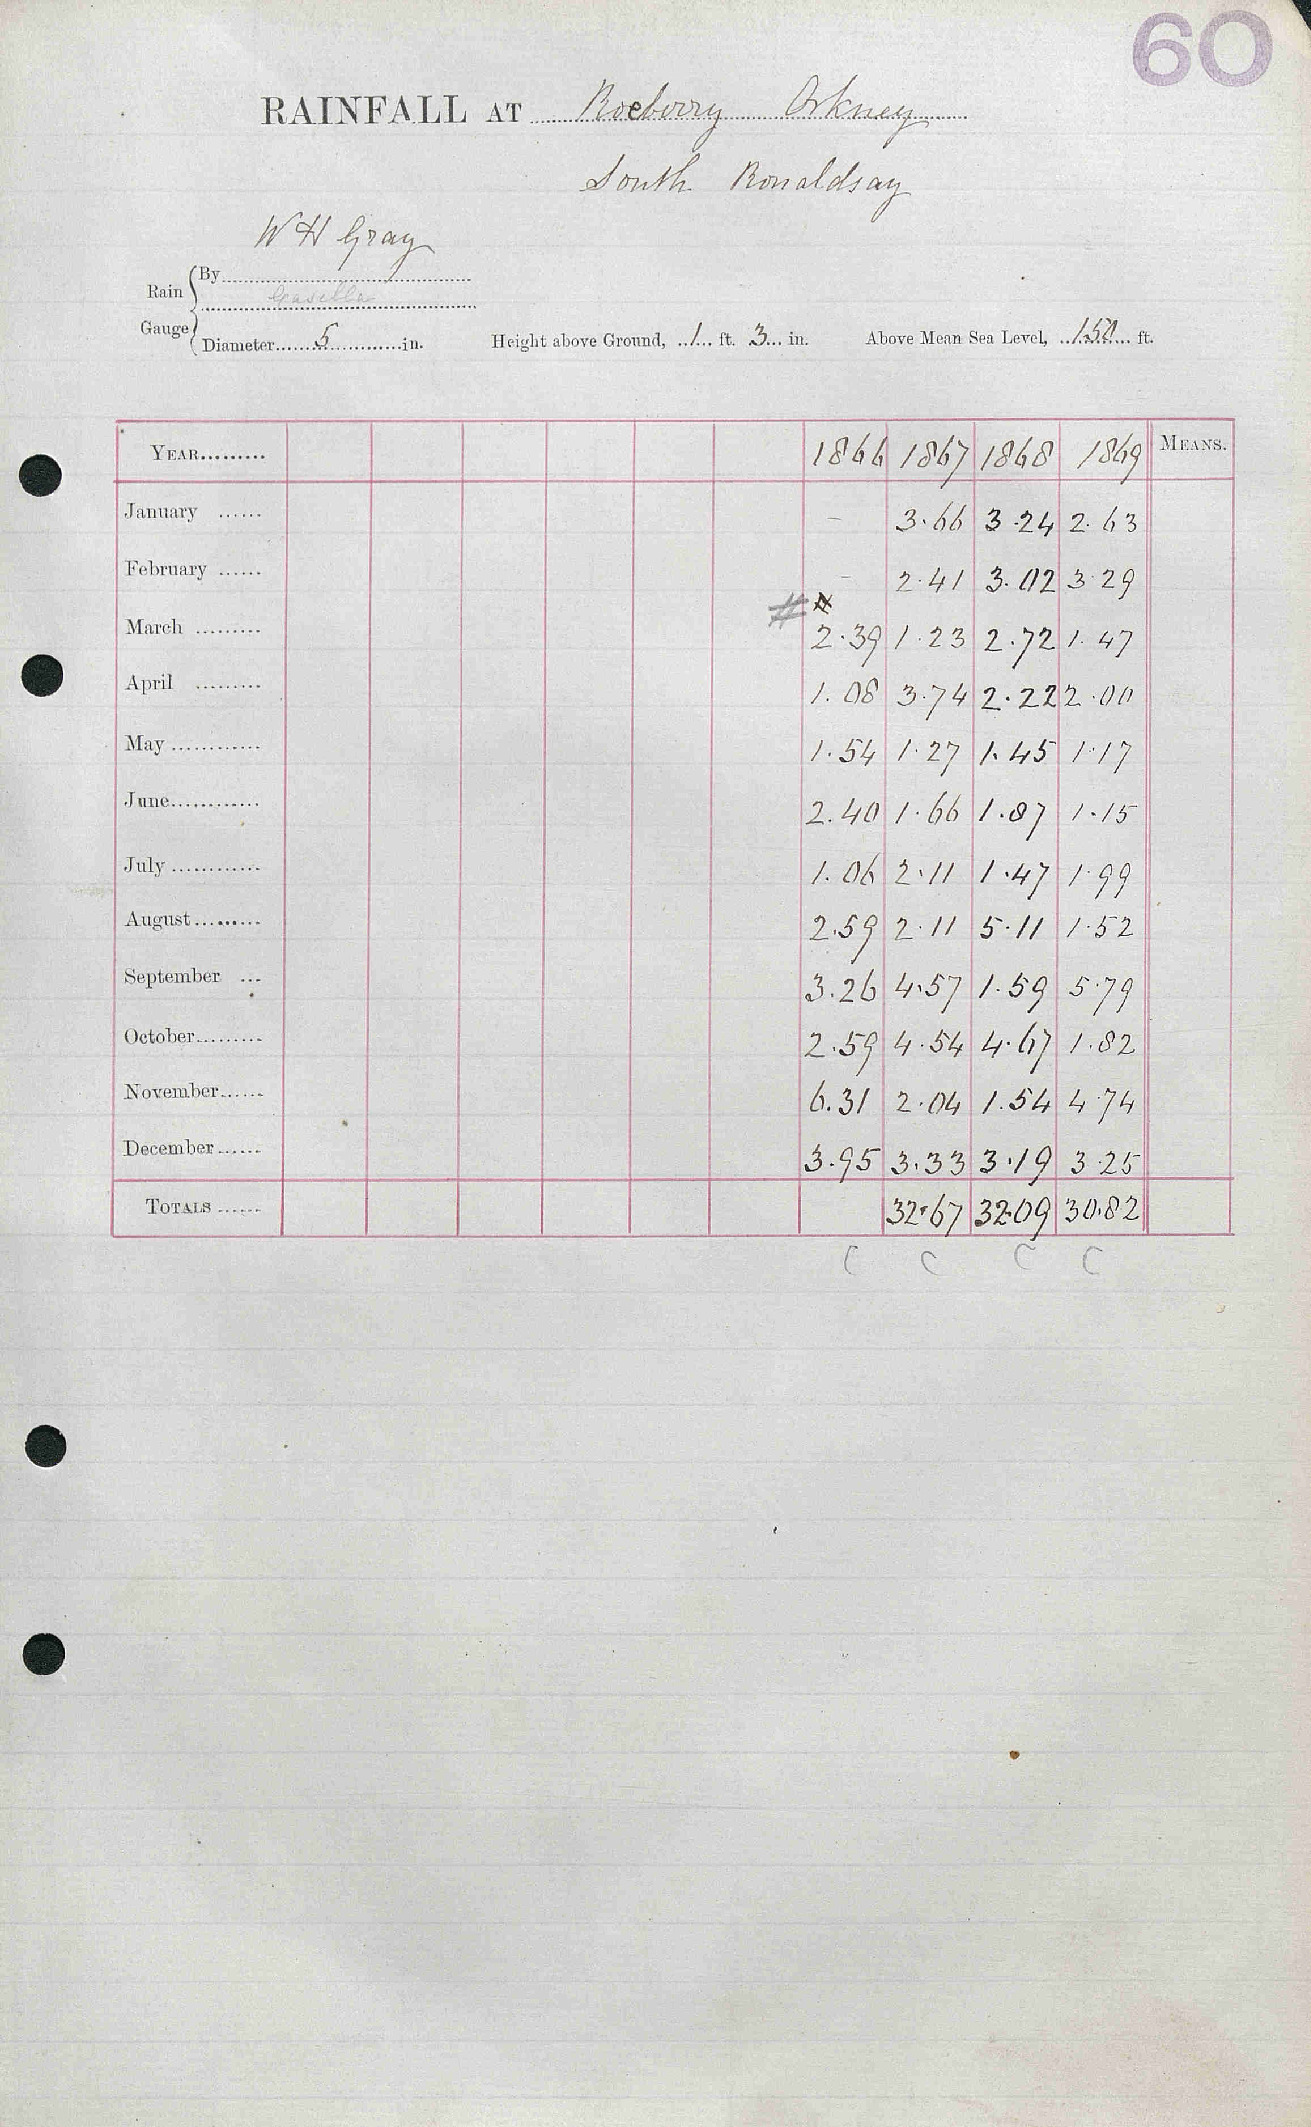 60
RAINFALL AT Roeberry Orkney
South Ronaldsay
W H Gray
Rain Gauge
By
Casella
Diameter......5............in. Height above Ground, ..1... ft. 3... in. Above Mean Sea Level, ..150... ft.
YEAR......... 1866 1867 1868 1869 MEANS.
January ...... – 3.66 3.24 2.63
February ...... – 2.41 3.02 3.29
#
March ......... 2.39 1.23 2.72 1.47
April ......... 1.08 3.74 2.22 2.00
May ............ 1.54 1.27 1.45 1.17
June............ 2.40 1.66 1.87 1.15
July ............ 1.06 2.11 1.47 1.99
August......... 2.59 2.11 5.11 1.52
September ... 3.26 4.57 1.59 5.79
October......... 2.59 4.54 4.67 1.82
November...... 6.31 2.04 1.54 4.74
December ...... 3.95 3.33 3.19 3.25
TOTALS ...... 32.67 32.09 30.82
C C C C